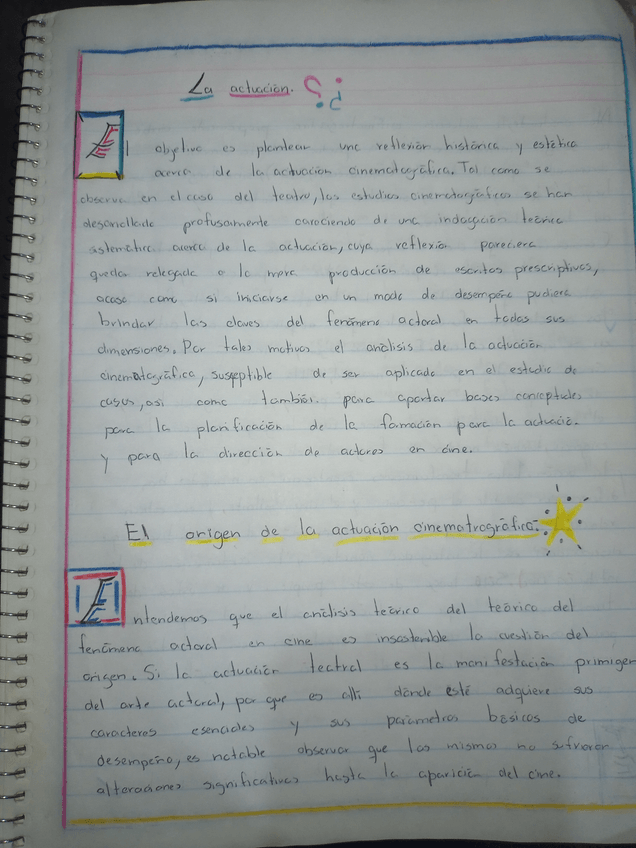 La actuación. ¿?
El objetivo es plantear una reflexión histórica y estética
acerca de la actuación cinematográfica. Tal como se
observa en el caso del teatro, los estudios cinematográficos se han
desarrollado profusamente careciendo de una indagación teórica
sistemática acerca de la actuación, cuya reflexión pareciera
quedar relegada a la mera producción de escritos prescriptivos,
acaso como si iniciarse en un modo de desempeño pudiera
brindar las claves del fenómeno actoral en todas sus
dimensiones. Por tales motivos el análisis de la actuación
cinematográfica, suseptible de ser aplicado en el estudio de
casos, así como también para aportar bases conceptuales
para la planificación de la formación para la actuación
y para la dirección de actores en cine.
El origen de la actuación cinematrográfica.
Entendemos que el análisis teórico del teórico del
fenómeno actoral en cine es insostenible la cuestión del
origen. Si la actuación teatral es la manifestación primigen
del arte actoral, por que es allí donde esté adquiere sus
caracteres esenciales y sus parámetros básicos de
desempeño, es notable observar que las mismas no sufrieron
alteraciones significativas hasta la aparició del cine.